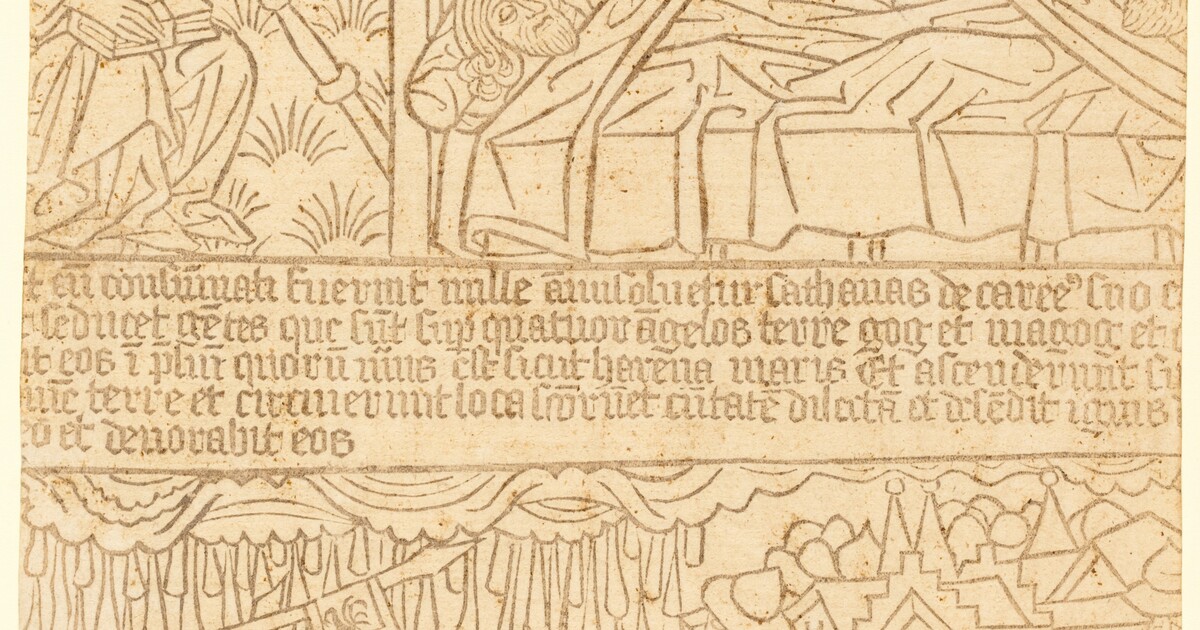 cū consūmati fuerint mille āni soluetur sathanas de carcere suo
seducet gētes que sūt sup quatuor āgelos terre gog et magog et
eos ī pliū quorū nūus ē sicut harena maris Et ascenderūnt
terre et circuierunt loca scōrū et ciuitatē dilectā et descēdit ignis
et deuorabit eos